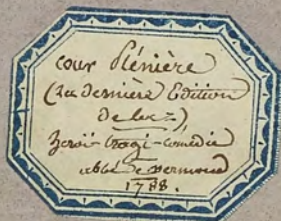 cour Plénière
(La dernière Edition
de la =)
héroï-tragi-comédie
abbé de vermond
1788.